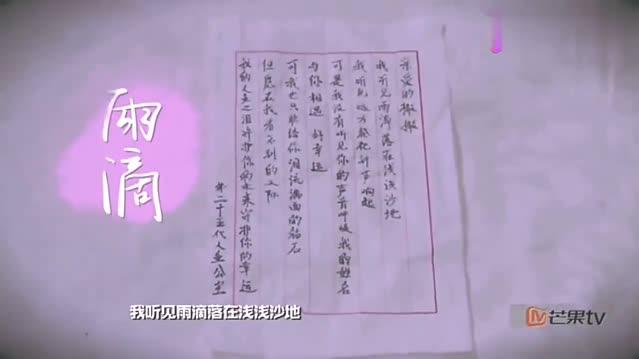 雨滴
亲爱的撒撒
我听见雨滴落在浅浅沙地
我听见远方
钟声响起
可是我没有听见你的声音
呼唤我的姓名
与你相遇 好幸运
可我也只能给你泪流满面的
但愿在我看不到的天际
我的人鱼之泪
你的幸运
第二十五代人鱼公主
我听见雨滴落在浅浅沙地
芒果tv